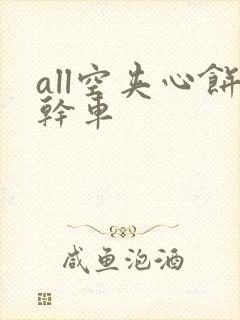 all空夹心餅
幹車
咸鱼泡酒